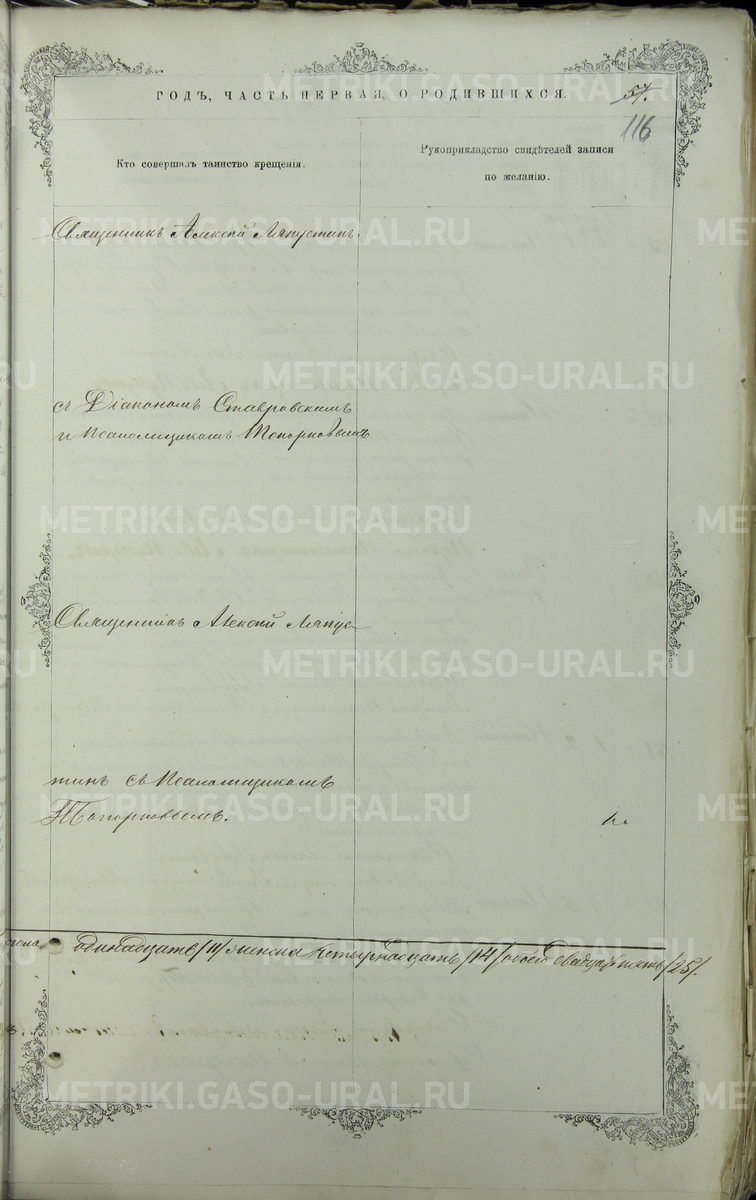 ГОДЪ, ЧАСТЬ ПЕРВАЯ, О РОДИВШИХСЯ.
57.
116
Кто совершалъ таинство крещенія.
Рукоприкладство свидѣтелей записи
по желанію.
Священникъ Алексѣй Ляпустинъ.
съ Діакономъ Ставровскимъ
и Псаломщикомъ Топорковымъ
Священникъ Алексѣй Ляпус-
тинъ съ Псаломщикомъ
Топорковымъ.
пола одинадцать /11/ женска четырнадцать /14/ обоего двадцать пять /25/.
METRIKI.GASO-URAL.RU